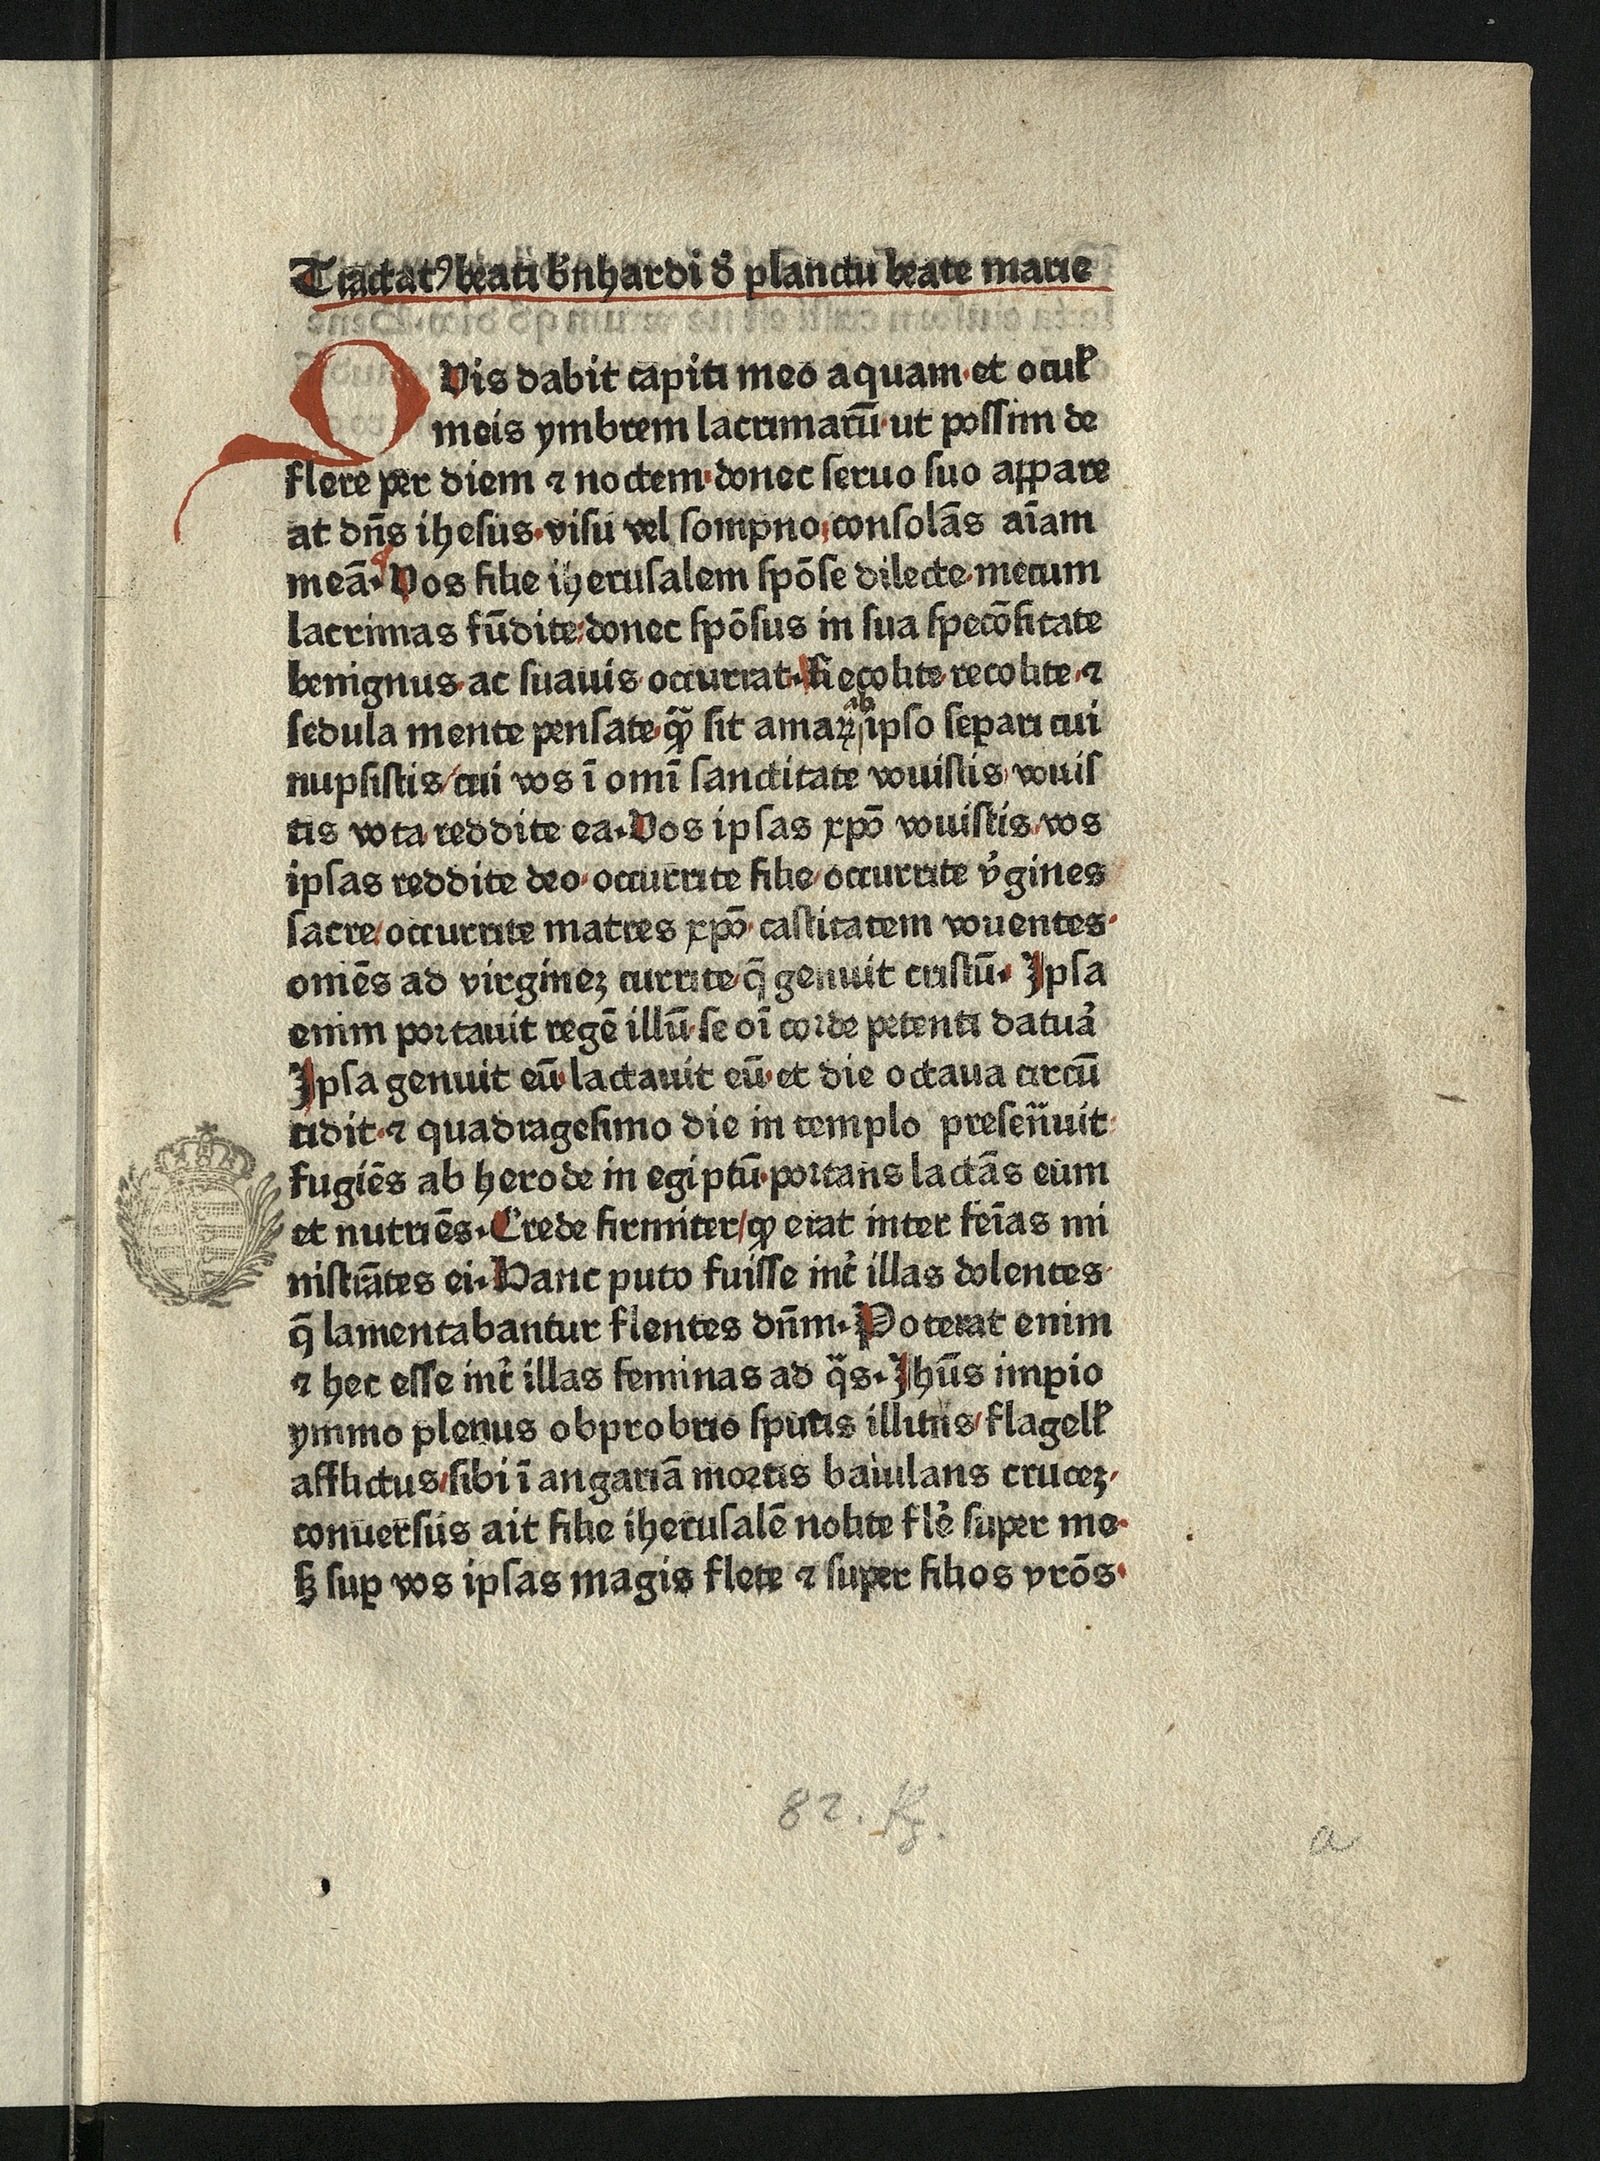 Tractatꝰ beati b̄nhardi d̄ planctu beate marie
QVis dabit capiti meo aquam·et oculꝭ
meis ymbrem lacrimarū·ut possim de
flere per diem ⁊ noctem·donec seruo suo appare
at dn̄s ihesus·visu vel sompno·consolās aīam
meā·Vos filie iherusalem spōse dilecte·mecum
lacrimas fūdite:donec spōsus in sua specōsitate
benignus·ac suauis·occurrat·Recolite·recolite·⁊
sedula mente pensate·qͣꝫ sit amaꝝ ab ipso separi cui
nupsistis/cui vos ī omī sanctitate vouistis·vouis
tis vota reddite ea·Vos ipsas xpō vouistis·vos
ipsas reddite deo·occurrite filie·occurrite v̓gines
sacre/occurrite matres xpō·castitatem vouentes·
omēs ad virgineꝫ currite·q̄ genuit cristū·Ipsa
enim portauit regē illū·se oī corde petenti datuꝝ̓
Ipsa genuit eū·lactauit eū·et die octaua circū
cidit·⁊ quadragesimo die in templo presen̄uit:
fugiēs ab herode in egiptū·portans lactās eum
et nutriēs·Crede firmiter/ꝙ erat inter feīas mi
nistrātes ei·Hanc puto fuisse int̓ illas dolentes·
q̄ lamentabantur flentes dn̄m·Poterat enim
⁊ hec esse int̓ illas feminas ad qͣs·Ihūs imꝑio
ymmo plenus obprobrio sputis illitus/flagellꝭ
afflictus/sibi ī angariā mortis baiulans cruceꝫ·
conuersus ait filie iherusalē nolite fle̓ super me·
sꝫ suꝑ vos ipsas magis flete ⁊ super filios vrōs·
82. Kz.
a